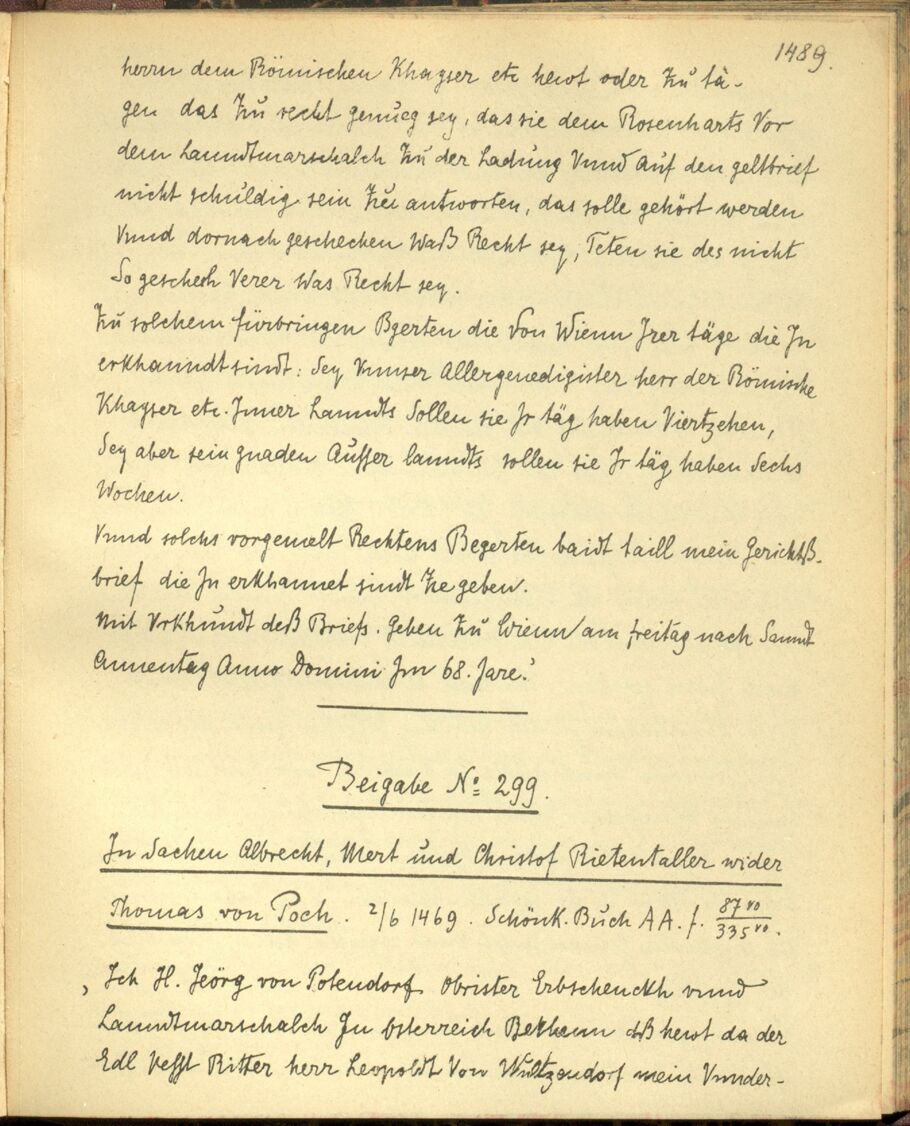 1489.
herrn dem Römischen Khayser etc hewt oder Zu tä-
gen das Zu recht genueg sey, das sie dem Rosenharts Vor
dem Lanndtmarschalch Zu der Ladung Vnnd Auf den geltbrief
nicht schuldig sein Zu antworten, das solle gehört werden
Vnnd dornach geschechen Waß Recht sey, Teten sie des nicht
So geschech Verer Was Recht sey.
Zu solchem fürbringen Bgerten die Von Wienn Jrer täge die Jn
erkhanndt sindt: Sey Vnnser Allergenedigister herr der Römische
Khayser etc. Jnner Lanndts Sollen sie Jr täg haben Viertzehen,
Sey aber sein gnaden Ausser lanndts sollen sie Jr täg haben Sechs
Wochen.
Vnnd solchs vorgemelt Rechtens Begerten baidt taill mein Gerichtß-
brief die Jn erkhannet sindt Ze geben.
Mit Vrkhundt deß Briefs. Geben Zu Wienn am freitag nach Sanndt
Annentag Anno Domini Jm 68. Jare.'
Beigabe No 299.
In Sachen Albrecht, Mert und Christof Rietentaller wider
Thomas von Poch. 2/6 1469. Schönk. Buch AA. f. 87 vo / 335 vo.
, Ich H. Jeörg von Potendorf Obrister Erbschenckh vnnd
Lanndtmarschalch Jn Osterreich Bekhenn dß hewt da der
Edl Vesst Ritter herr Leopoldt Von Wultzendorf mein Vnnder-